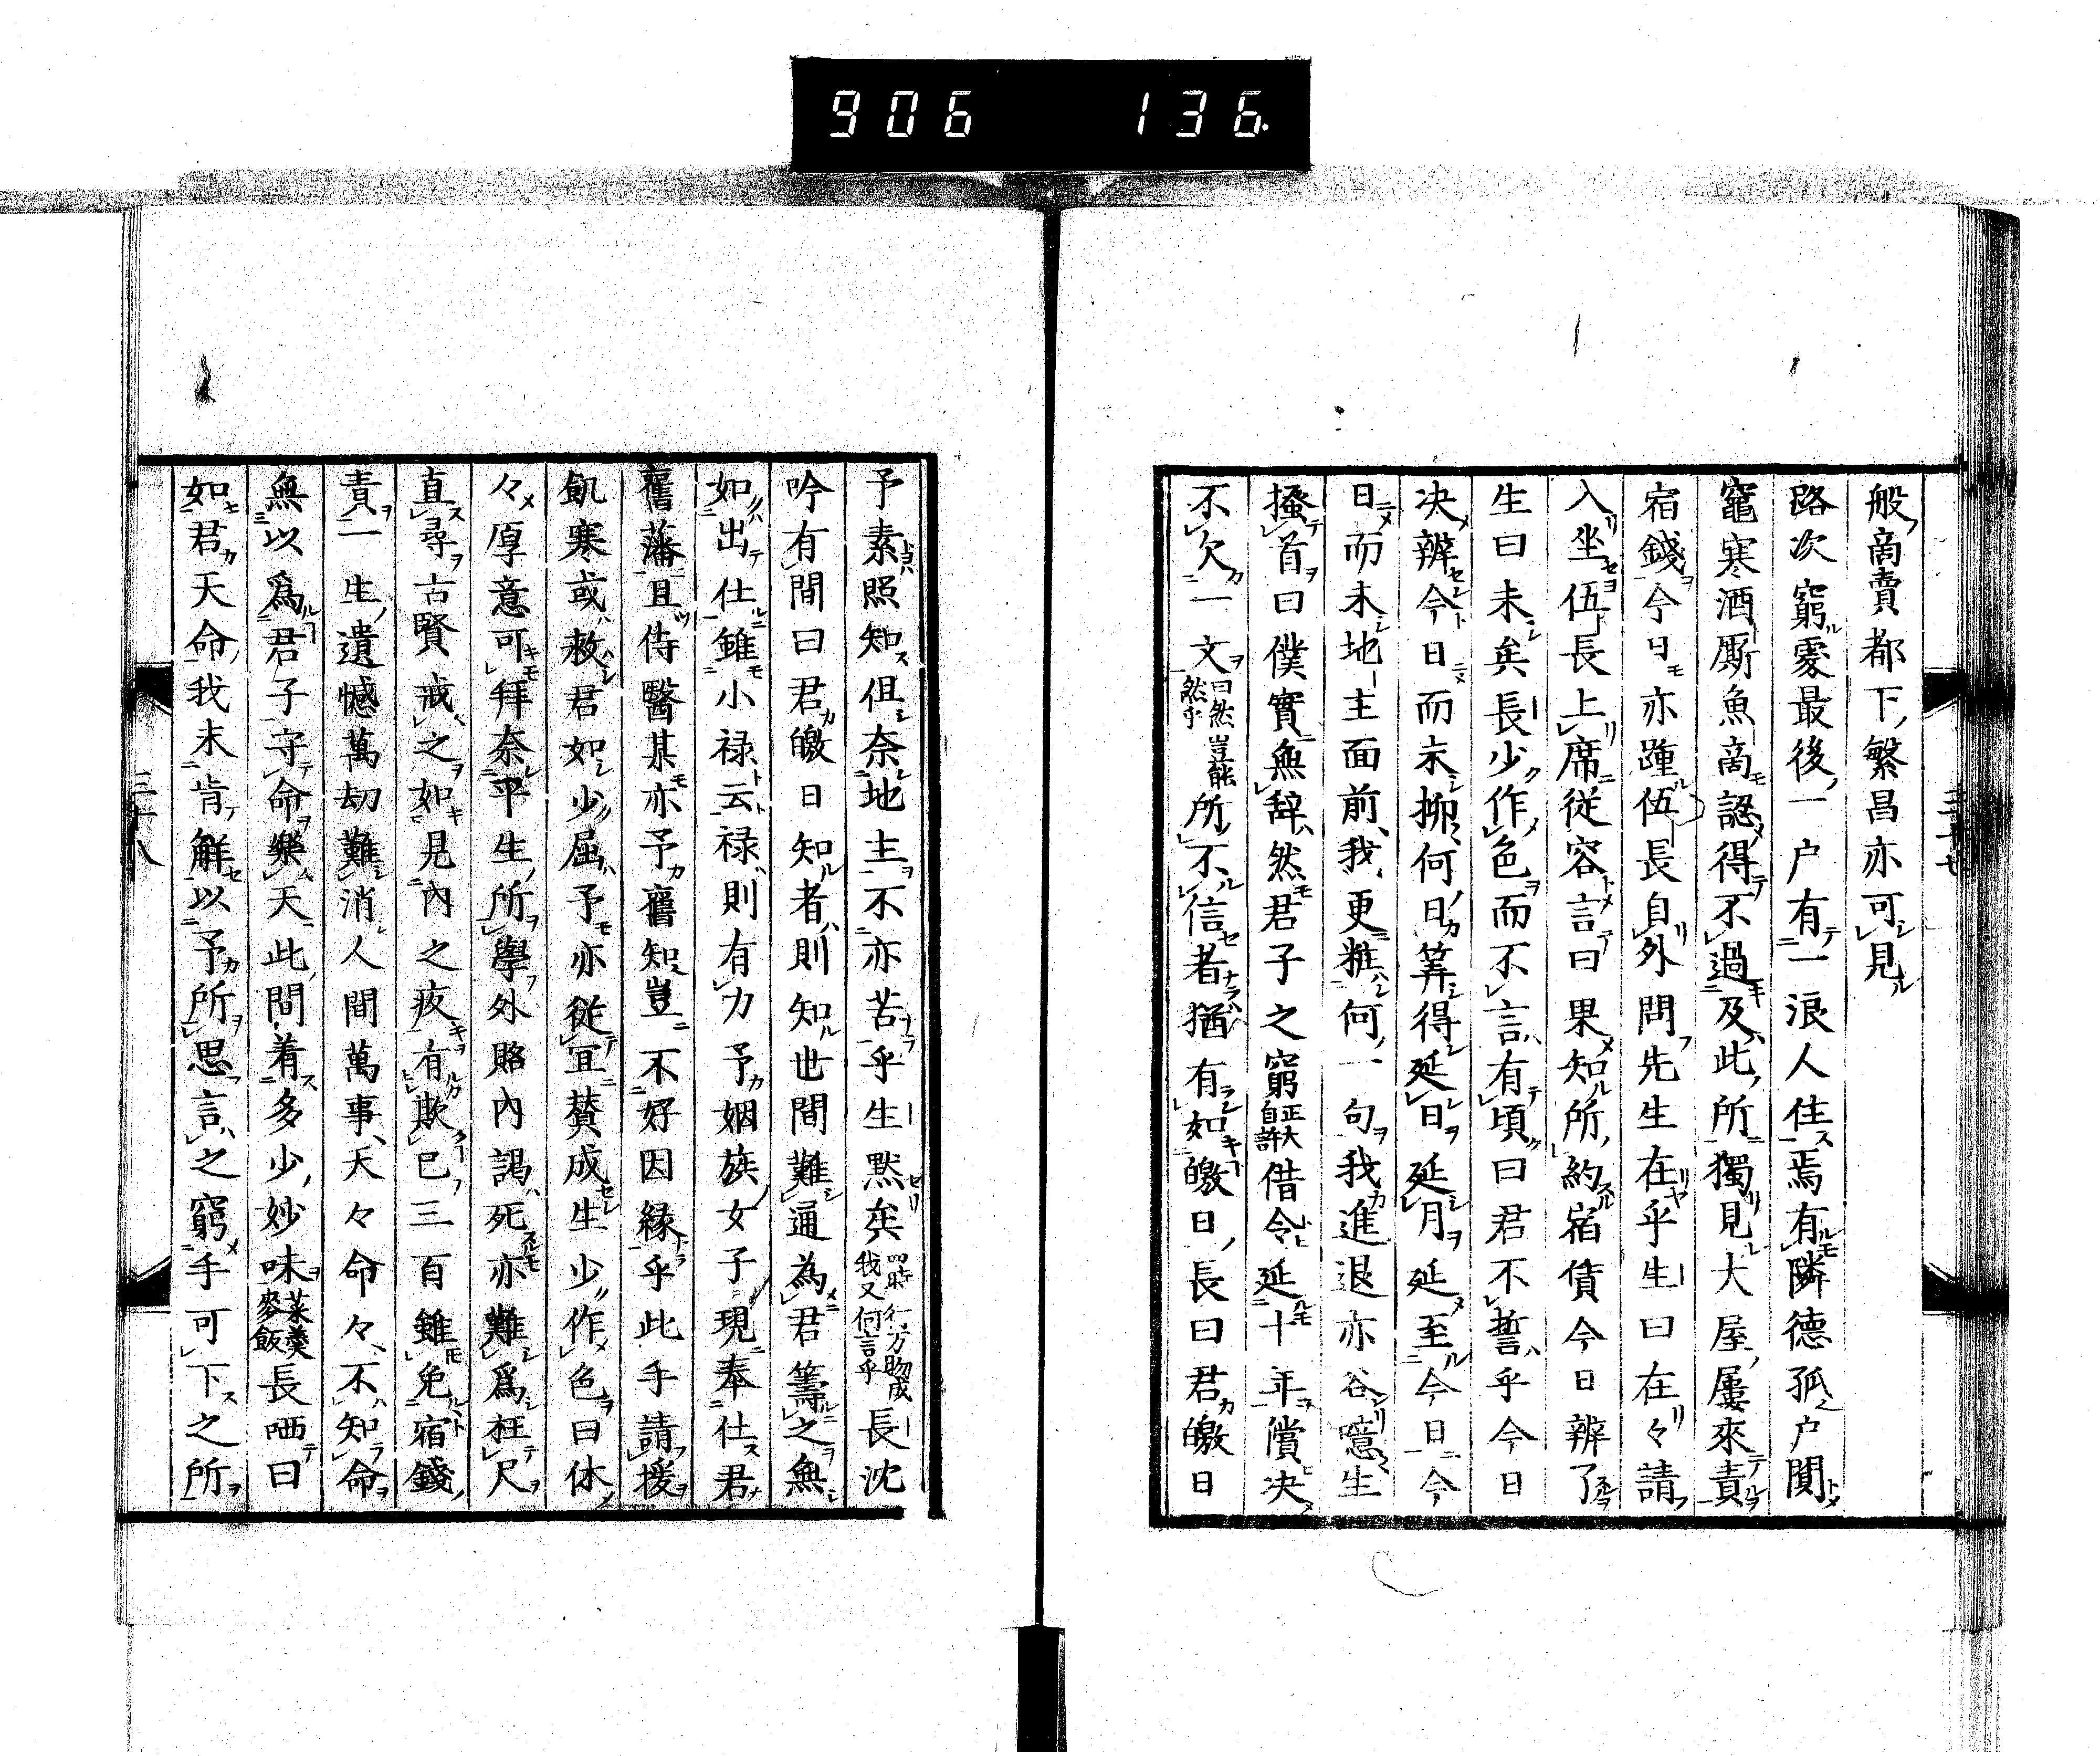 906 136
般商賣都下繁昌亦可見
路次窮處最後一戸有一浪人住焉有隣德孤戸関
竈寒酒厮魚商認得不過及此所獨見大屋屢來責
宿錢今日亦踵伍長自外問先生在乎生曰在々請
入坐伍長上席從容言曰果知所約宿債今日辨了
生曰未矣長少作色而不言有頃曰君不誓乎今日
决辨今日而未抑何日筭得延日延月延至今日今
日而未地主面前我更粧何一句我進退亦谷噫生
搔首曰僕實無辭然君子之窮正大自許借令延十年償决
不欠一文曰然豈能然乎所不信者猶有如皦日長曰君皦日
三十七
予素照知但奈地主不亦苦乎生默矣四時行万物成我又何言乎長沈
吟有間曰君皦日知者則知世間難通為君籌之無
如出仕雖小禄云禄則有力予姻族女子現奉仕君
舊藩且侍醫某亦予舊知豈不好因縁乎此手請援
飢寒或救君如少屈予亦從宜賛成生少作色曰休
々厚意可拜奈平生所學外賂內謁死亦難爲枉尺
直尋古賢戒之如見內之疚有欺已三百雖免宿錢
責一生遺憾萬劫難消人間萬事天々命々不知命
無以爲君子守命樂天此間着多少妙味菜羹麥飯長哂曰
如君天命我未肯解以予所思言之窮手可下之所
三十八